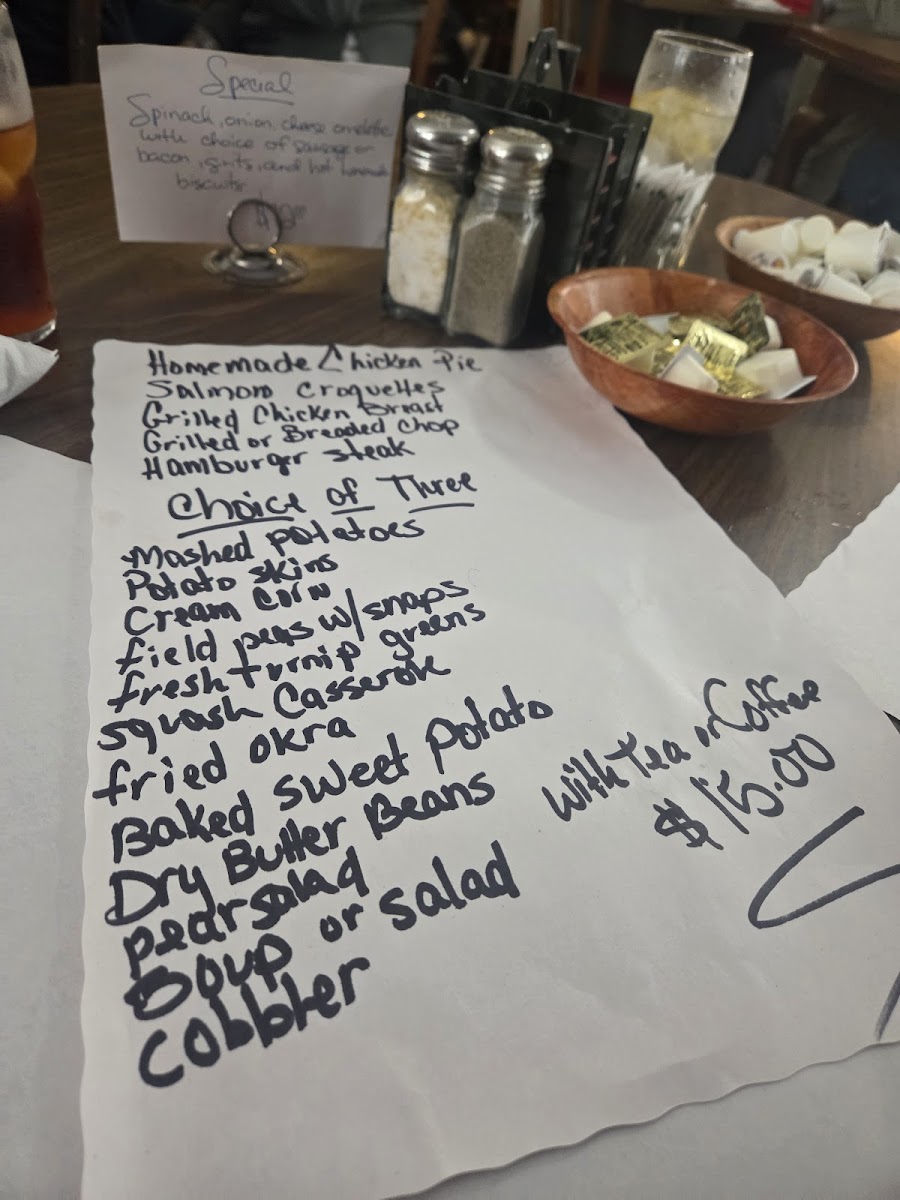 Special
Spinach, onion, cheese omelette
with choice of sausage or
bacon, grits, and hot homemade
biscuits
Homemade Chicken Pie
Salmon Croquettes
Grilled Chicken Breast
Grilled or Breaded Chop
Hamburger Steak
Choice of Three
Mashed potatoes
Potato skins
Cream Corn
field peas w/snaps
fresh turnip greens
squash Casserole
fried okra
Baked sweet potato
Dry Butter Beans
pear salad
Soup or salad
Cobbler
With Tea or Coffee
$15.00